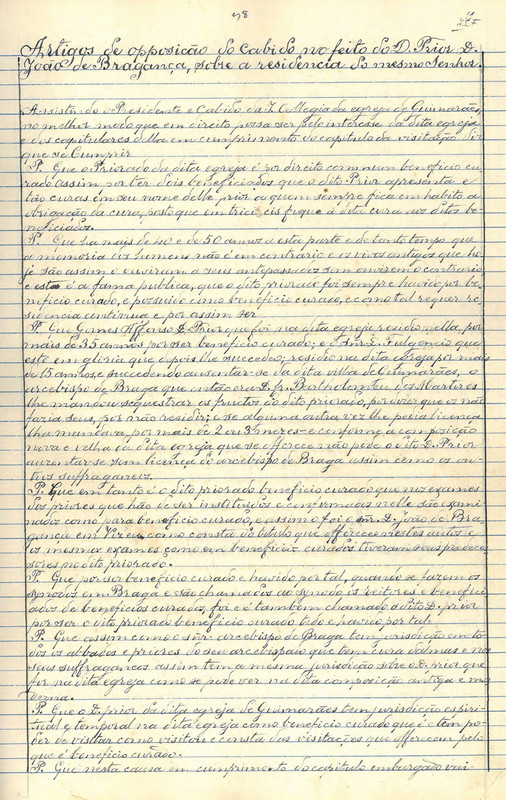 98
Artigos de opposição do Cabido no feito do D. Prior D.
João de Bragança, sobre a residencia do mesmo Senhor.
Assistindo o Presidente e Cabido da I. Collegiada egreja de Guimarães,
no melhor modo que em direito possa ser pelo interesse da dita egreja
e dos capitulares della em cumprimento do capitulo da visitação diz
que se Cumprir
P. Que o Priorado da dita egreja é por direito commum beneficio cu-
rado assim por ter dois beneficiados que o dito Prior apresenta e
são curas em seu nome delle prior a quem sempre fica em habito a
obrigação da cura, posto que em fique a dita cura aos ditos be-
neficiados.
P. Que ha mais de 40 e de 50 annos a esta parte e de tanto tempo que
a memoria dos homens não é em contrario e os vivos antigos que ho-
je são assim o ouviram a seus antepassados sem ouvirem o contrario
e esta é a fama publica, que o dito priorado foi sempre havido por be-
neficio curado, e possuido como beneficio curado, e como tal requer re-
sidencia continua e por assim ser
P. Que Gomes Affonso D. Prior que foi na dita egreja residio nella, por
mais de 35 annos por ser beneficio curado; e o snr. D. Fulgencio que
este em gloria que depois lhe succedeo; residio na dita egreja por mais
de 15 annos, e succedendo ausentar-se da dita villa de Guimarães, o
arcebispo de Braga que então era D. fr. Bartholomeu dos Martires
lhe mandou sequestrar os fructos do dito priorado, por dizer que os não
fazia seus, por não residir; e se alguma outra vez lhe pedia licença
lha mandava, por mais de 2 ou 3 meses e conforme a composição
nova e velha da dita egreja que se offerece não pode o dito D. Prior
auzentar-se sem licença do arcebispo de Braga assim como os ou-
tros suffraganeos.
P. Que em tanto é o dito priorado beneficio curado que nos exames
dos priores que hão de ser instituidos e confirmados nelle são exami-
nados como para beneficio curado, e assim o foi o snr. D. João de Bra-
gança em Vizeu como consta do libello que offerece nestes autos e
os mesmos exames como em beneficios curados tiveram seus predeces-
sores no dito priorado.
P. Que por ser beneficio curado e havido por tal, quando se fazem os
synodos em Braga e são chamados ao synodo os reitores e benefici-
ados de beneficios curados, foi e é tambem chamado o dito D. prior
por ser o dito priorado beneficio curado tido e havido por tal
P. Que assim como o snr. arcebispo de Braga tem jurisdição em to-
dos os abbades e priores do seu arcebispado que tem cura dalmas e nos
seus suffraganeos assim tem a mesma jurisdição sobre o D. prior que
for na dita egreja como se pode ver na dita composição antiga e mo-
derna.
P. Que o D. prior da dita egreja de Guimarães tem jurisdição espiri-
tual e temporal na dita egreja como beneficio curado que é e tem po-
der de visitar como visitou e consta das visitações que offerecem pelo
que é beneficio curado.
P. Que nesta causa em cumprimento do capitulo embargado vai